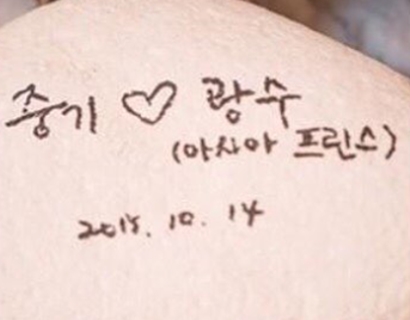 중기 ♡ 광수
(아시아 프린스)
2015. 10. 14